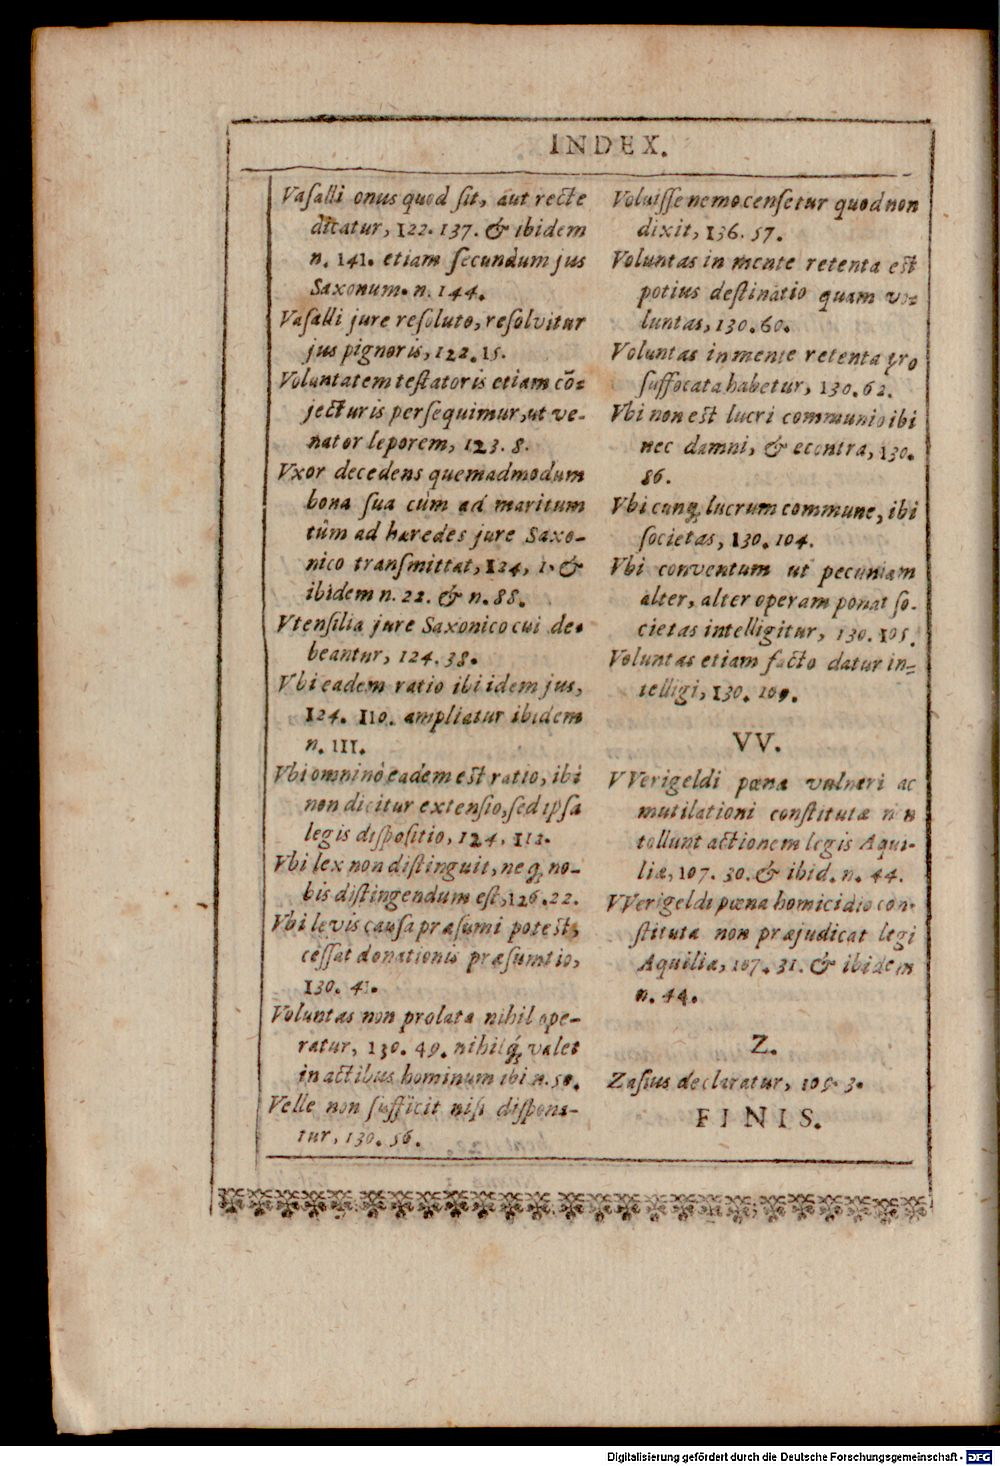 INDEX.
Vaſalli onus quod ſit, aut recte
dicatur, 122. 137. & ibidem
n. 141. etiam ſecundum jus
Saxonum. n. 144.
Vaſalli jure reſoluto, reſolvitur
jus pignoris, 122. 15.
Voluntatem teſtatoris etiam cõ-
jecturis perſequimur, ut ve-
nator leporem, 123. 8.
Vxor decedens quemadmodum
bona ſua cùm ad maritum
tûm ad hæredes jure Saxo-
nico tranſmittat, 124, 1. &
ibidem n. 22. & n. 88.
Vtenſilia jure Saxonico cui de-
beantur, 124. 38.
Vbi eadem ratio ibi idem jus,
124. 110. ampliatur ibidem
n. 111.
Vbi omninò eadem est ratio, ibi
non dicitur extenſio, ſed ipſa
legis diſpoſitio, 124, 112.
Vbi lex non diſtinguit, neq; no-
bis diſtingendum eſt, 126. 22.
Vbi levis cauſa præſumi potest,
ceſſat donationis præſumtio,
130. 41.
Voluntas non prolata nihil ope-
ratur, 130. 49. nihilq́; valet
in actibus hominum ibi n. 50.
Velle non ſufficit niſi diſpona-
tur, 130. 56.
Voluiſſe nemo cenſetur quod non
dixit, 136. 57.
Voluntas in mente retenta est
potius deſtinatio quam vo-
luntas, 130. 60.
Voluntas in mente retenta pro
ſuffocata habetur, 130. 62.
Vbi non est lucri communio ibi
nec damni, & econtra, 130.
86.
Vbi cunq; lucrum commune, ibi
ſocietas, 130. 104.
Vbi conventum ut pecuniam
alter, alter operam ponat ſo-
cietas intelligitur, 130. 105.
Voluntas etiam facto datur in-
telligi, 130. 109.
VV.
VVerigeldi pœna vulneri ac
mutilationi conſtitutæ non
tollunt actionem legis Aqui-
liæ, 107. 30. & ibid. n. 44.
VVerigeldi pœna homicidio con-
ſtituta non præjudicat legi
Aquiliæ, 107. 31. & ibidem
n. 44.
Z.
Zaſius declaratur, 109. 3.
FINIS.
Digitalisierung gefördert durch die Deutsche Forschungsgemeinschaft - DFG